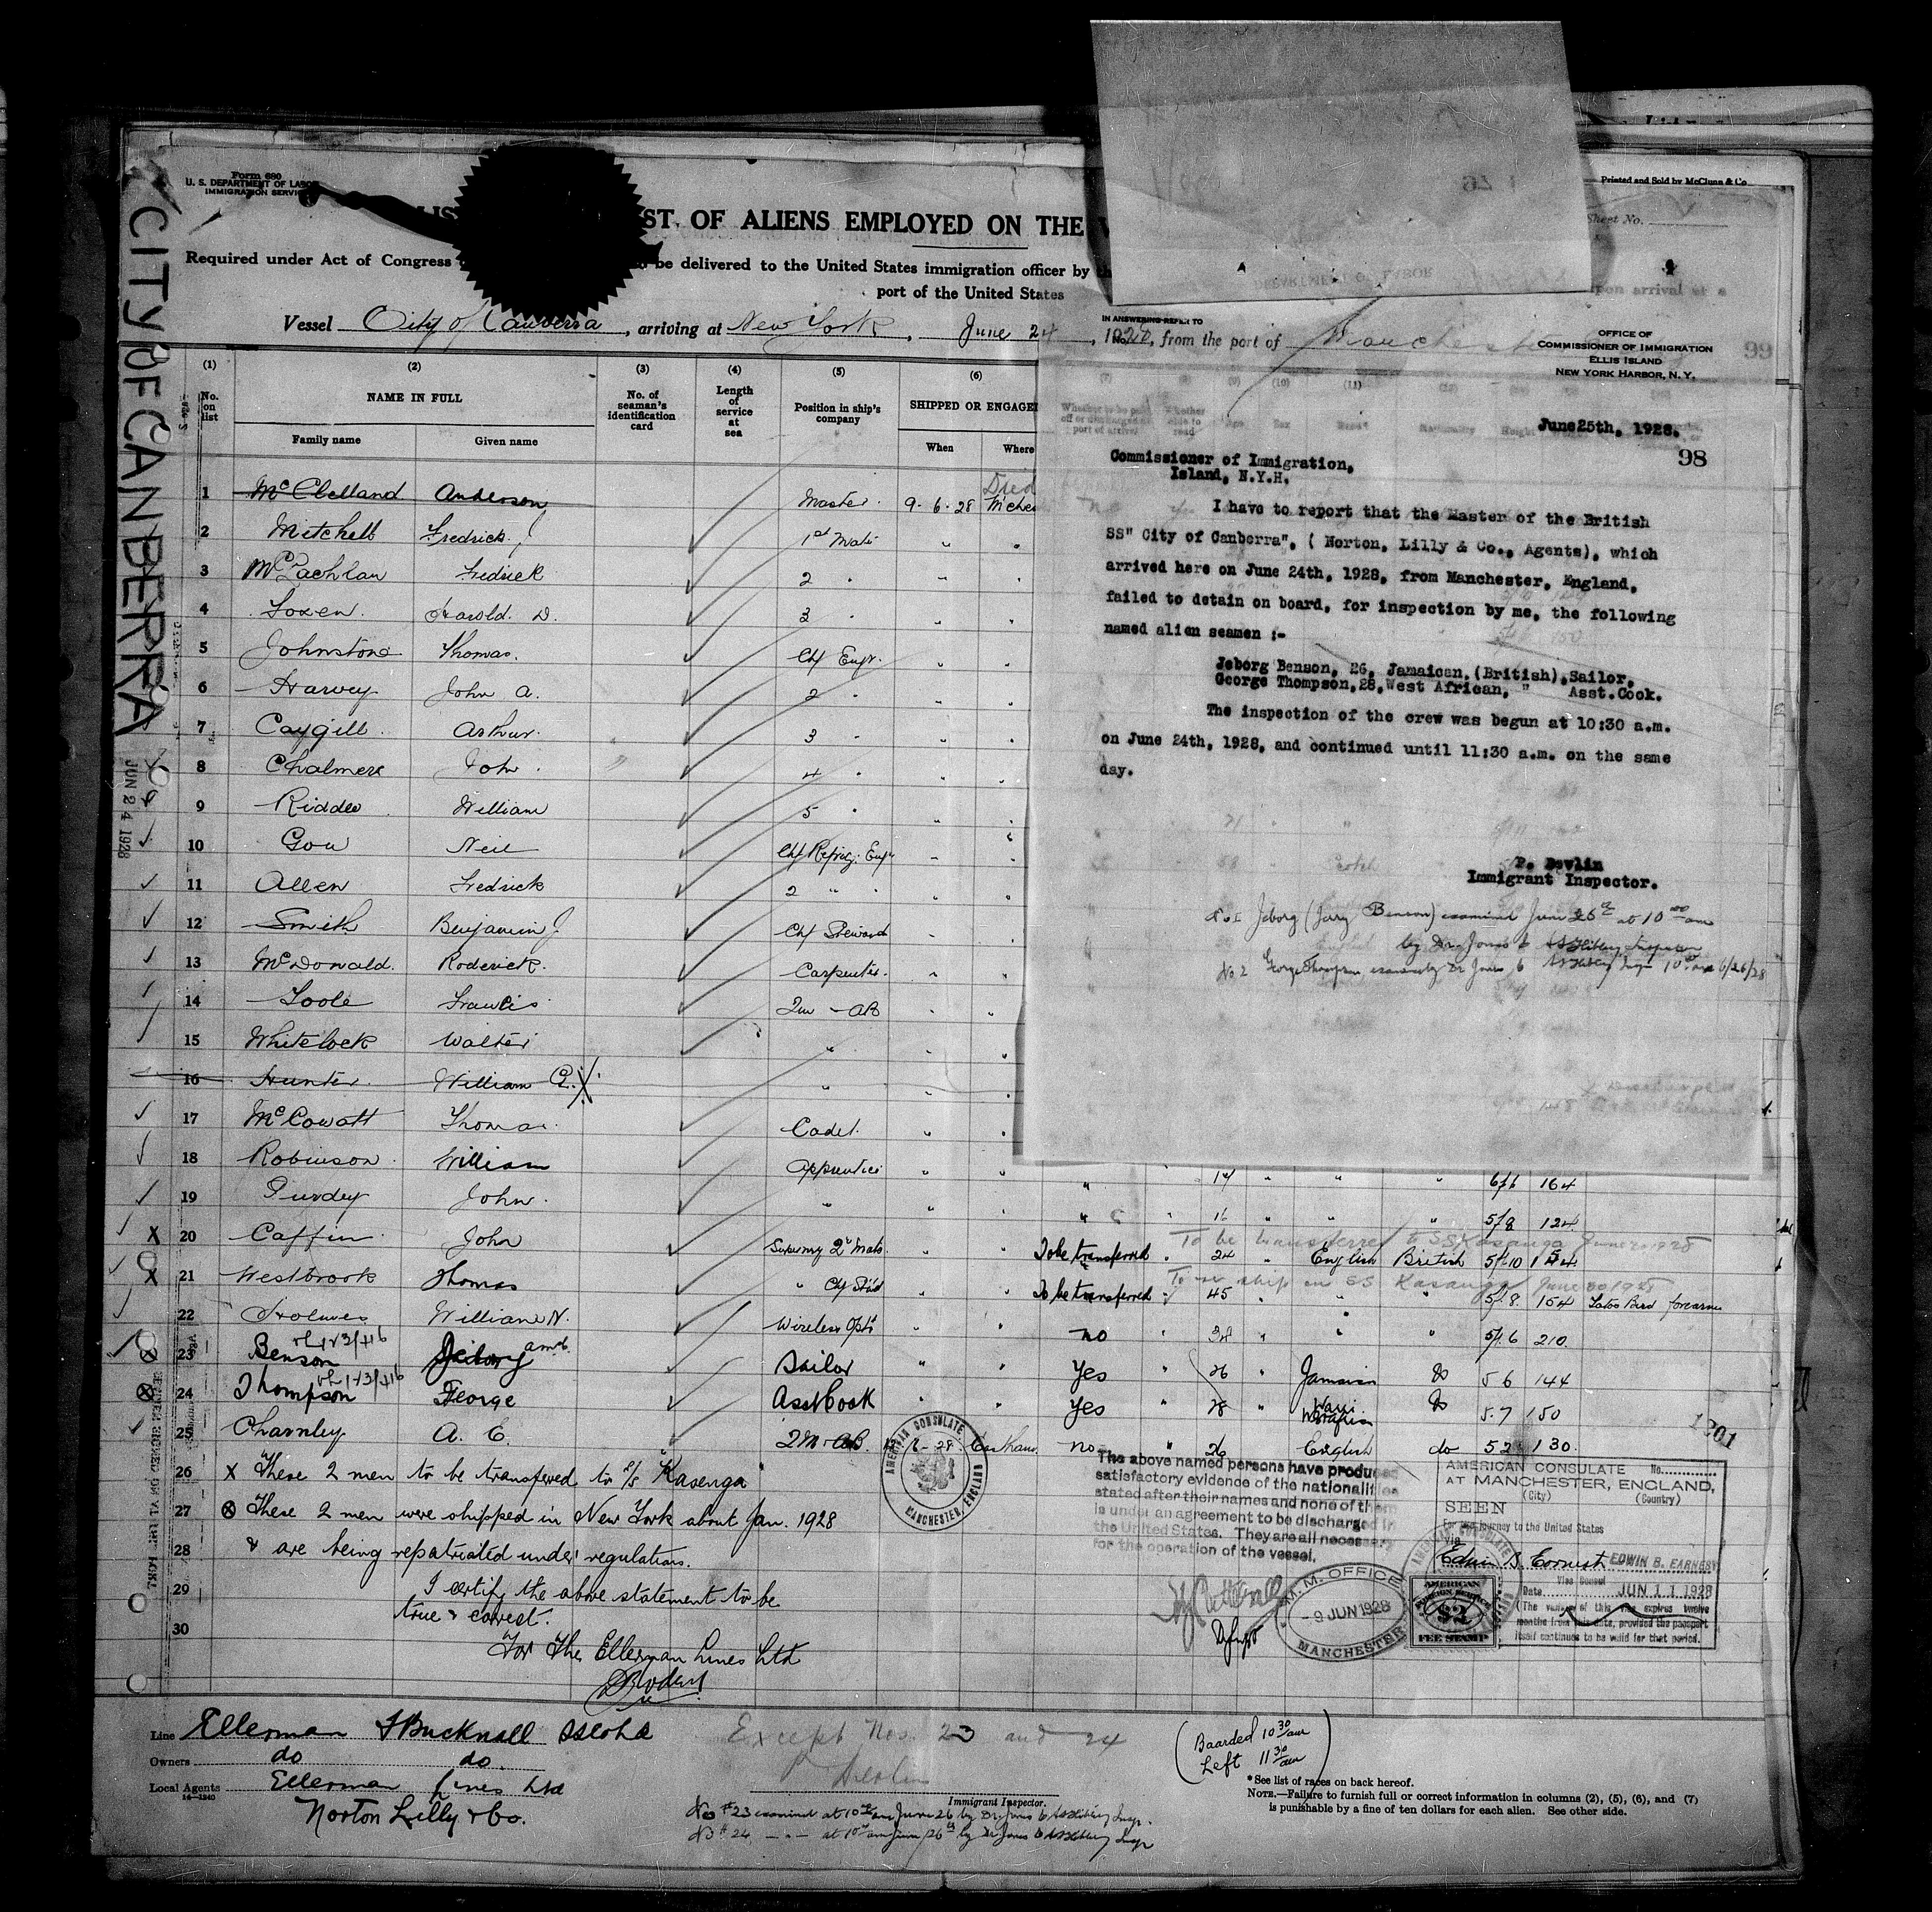 Form 680
U. S. DEPARTMENT OF LABOR
IMMIGRATION SERVICE
Printed and Sold by McClunn & Co.
Sheet No.
ST OF ALIENS EMPLOYED ON THE V
Required under Act of Congress
be delivered to the United States immigration officer by
upon arrival at a
port of the United States
DEPARTMENT OF LABOR
Vessel City of Canberra, arriving at New York, June 24, 1928, from the port of Manchester
CITY OF CANBERRA
JUN 24 1928
(1) (2) (3) (4) (5) (6)
No. on list
NAME IN FULL
Family name Given name
No. of seaman's identification card
Length of service at sea
Position in ship's company
SHIPPED OR ENGAGE
When Where
1 McClelland Anderson Master 9-6-28 Died
2 Mitchell Fredrick 1st Mate " "
3 McLachlan Fredrick 2 " " "
4 Loxen Harold. D. 3 " " "
5 Johnstone Thomas. Chf Engr. " "
6 Harvey John A. 2 " " "
7 Caygill Arthur. 3 " " "
8 Chalmers John. 4 " " "
9 Riddle William 5 " " "
10 Gow Neil Chf Refrig. Engr " "
11 Allen Fredrick 2 " " " "
12 Smith Benjamin J. Chf Steward " "
13 McDonald. Roderick. Carpenter. " "
14 Toole Francis Qm - AB " "
15 Whitelock Walter " " "
16 Hunter William " " "
17 McCowatt Thomas Cadet. " "
18 Robinson William Apprentice " " " 17 " " " 164
19 Purdey John. " " " " 16 " " " 5/8 124
To be transferred to SS Kasanga June
20 Caffin John Supernry 2d Mate " " To be transferred " 24 " English British 5/10 154
21 Westbrook Thomas " Chf Std " " To be transferred " 45 " " " 5/8 154 Tatoo Bird forearm
22 Holmes William H. Wireless Optr " " no " 38 " " " 5/6 210
23 Benson Sailor " " Yes 26 " Jamaican do 5 6 144
24 Thompson George Asst Cook " " Yes " 28 " W African do 5.7 150
25 Charnley A. E. Qm - AB no " 26 English do 5 2 130
26 X These 2 men to be transferred to s/s Kasenga
27 ⊗ These 2 men were shipped in New York about Jan. 1928
28 & are being repatriated under regulations.
29 I certify the above statement to be
true & correct.
30 For The Ellerman Lines Ltd
IN ANSWERING REFER TO
No.
OFFICE OF
COMMISSIONER OF IMMIGRATION
ELLIS ISLAND
NEW YORK HARBOR, N. Y.
99
June 25th, 1928.
98
Commissioner of Immigration,
Island, N.Y.H.
I have to report that the Master of the British
SS" City of Canberra", ( Norton, Lilly & Co., Agents), which
arrived here on June 24th, 1928, from Manchester, England,
failed to detain on board, for inspection by me, the following
named alien seamen :-
Jeborg Benson, 26, Jamaican, (British), Sailor.
George Thompson, 28, West African, " Asst. Cook.
The inspection of the crew was begun at 10:30 a.m.
on June 24th, 1928, and continued until 11:30 a.m. on the same
day.
P. Devlin
Immigrant Inspector.
No 1 Jeborg (Jary Benson) examined June 26th at 10 00 am
by Dr. Jones &
No 2 George Thompson examined by Dr Jones & 10 00 am 6/26/28
AMERICAN CONSULATE
MANCHESTER, ENGLAND
The above named persons have produced
satisfactory evidence of the nationalities
stated after their names and none of them
is under an agreement to be discharged in
the United States. They are all necessary
for the operation of the vessel.
M.M. OFFICE
- 9 JUN 1928
MANCHESTER
1201
AMERICAN CONSULATE No.
AT MANCHESTER, ENGLAND,
(City) (Country)
SEEN
For the journey to the United States
Via
Edwin B. Earnest EDWIN B. EARNEST
Vice Consul
Date JUN 11 1928
(The validity of this visa expires twelve
months from this date, provided the passport
itself continues to be valid for that period.
AMERICAN
FOREIGN SERVICE
$2
FEE STAMP
Line Ellerman & Bucknall SS Co Ltd
Owners do do.
Local Agents Ellerman Lines Ltd
14—1240
Norton Lilly & Co.
Except Nos. 23 and 24
P Devlin
Immigrant Inspector.
No #23 examined at 10 00 am June 26 by Dr Jones & Insp.
No #24 — " — at 10 00 am June 26th by Dr Jones & Insp
(Boarded 10 30 am
Left 11 30 am)
* See list of races on back hereof.
NOTE.—Failure to furnish full or correct information in columns (2), (5), (6), and (7)
is punishable by a fine of ten dollars for each alien. See other side.